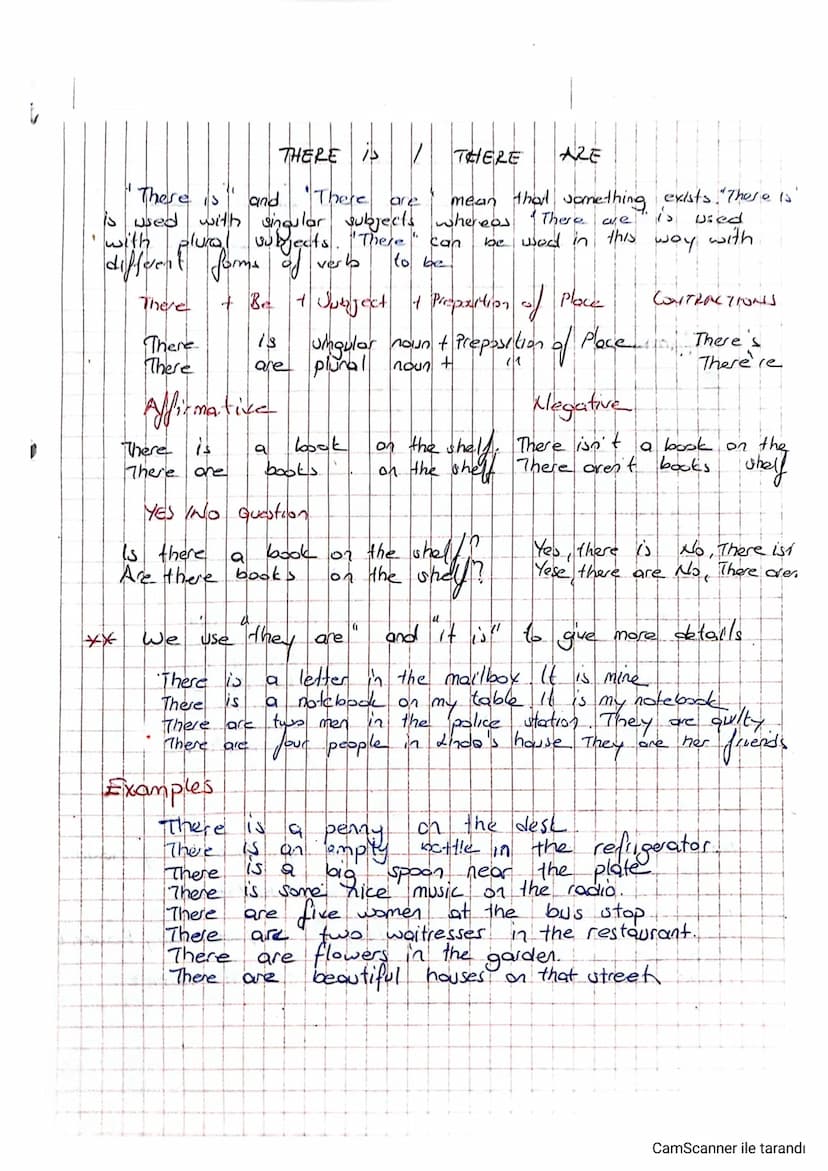 THERE is / THERE ARE
"There is" and "There are" mean that something exists. "There is"
is used with singular subjects whereas "There are" is used
with plural subjects. "There" can be used in this way with
different forms of verb to be
There + Be + Subject + Preposition of Place CONTRACTIONS
There is singular noun + Preposition of Place There's
There are plural noun + " There're
Affirmative Negative
There is a book on the shelf. There isn't a book on the
There are books on the shelf There aren't books shelf
YES/NO Question
Is there a book on the shelf? Yes, there is No, There isn
Are there books on the shelf? Yese, there are No, There aren
** We use "they are" and "it is" to give more details
There is a letter in the mailbox. It is mine
There is a notebook on my table. It is my notebook
There are two men in the police station. They are guilty
There are four people in house They are her friends
Examples
There is a penny on the desk
There is an empty bottle in the refrigerator.
There is a big spoon near the plate
There is some nice music on the radio.
There are five women at the bus stop
There are two waitresses in the restaurant.
There are flowers in the garden.
There are beautiful houses on that street
CamScanner ile tarandı